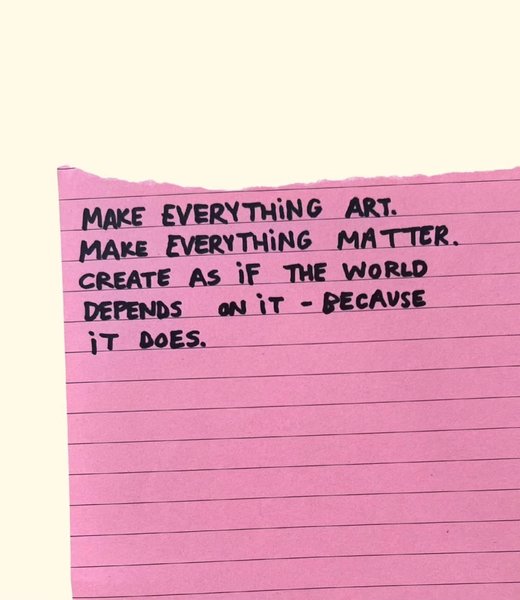 MAKE EVERYTHiNG ART.
MAKE EVERYTHiNG MATTER.
CREATE AS iF THE WORLD
DEPENDS ON iT - BECAUSE
iT DOES.